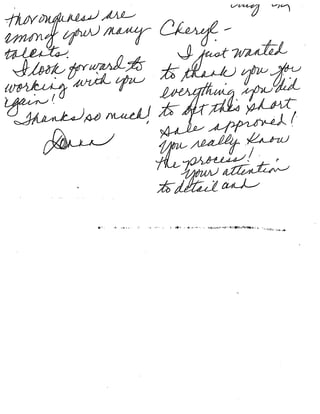 Cheryl -
I just wanted
to thank you for
everything you did
to get this short
sale approved!
You really know
the process!
Your attention
to detail and
thoroughness are
among your many
talents.
I look forward to
working with you
again!
Thanks so much!